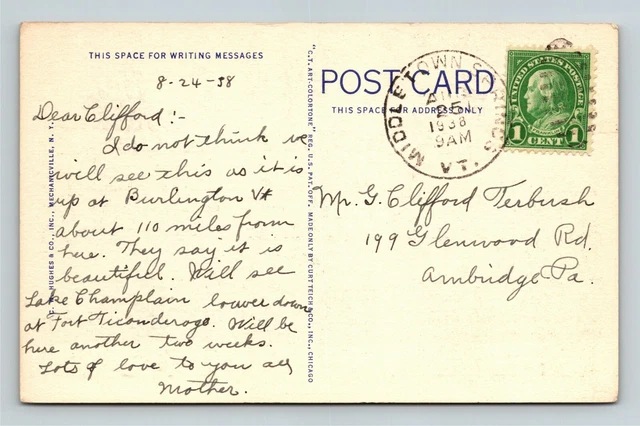 THIS SPACE FOR WRITING MESSAGES
8-24-38
Dear Clifford:-
I do not think we
will see this as it is
up at Burlington Vt
about 110 miles from
here. They say it is
beautiful. Will see
Lake Champlain lower down
at Fort Ticonderoga. Will be
here another two weeks.
Lots of love to you all
Mother.
HUGHES & CO., INC., MECHANICVILLE, N. Y.
"C.T. ART-COLORTONE" REG. U.S. PAT. OFF. MADE ONLY BY CURT TEICH & CO., INC., CHICAGO
POST CARD
THIS SPACE FOR ADDRESS ONLY
MIDDLETOWN SPRINGS, VT.
AUG
25
1938
9AM
UNITED STATES POSTAGE
1 1
CENT
Mr. G. Clifford Terbush
199 Glenwood Rd.
Ambridge Pa.